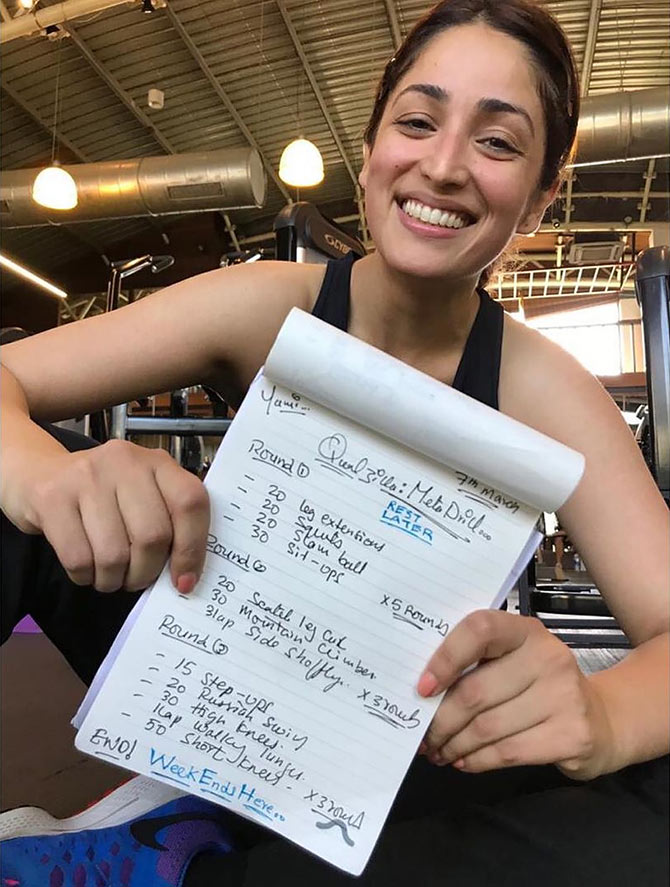 Yami...
7th March
Quadzilla: MetaDrill...
REST
LATER
Round ①
- 20 leg extensions
- 20 Squats
- 20 Slam ball
- 30 Sit-ups
x 5 Rounds
Round ②
20 Seated leg Curl
30 Mountain Climber
3lap Side Shuffly.
x 3 rounds
Round ③
- 15 Step-ups
- 20 Russian Swing
- 30 High knees.
- 1Lap Walky lunges.
- 50 Short knees.
x 3 round
END!
Week Ends Here..